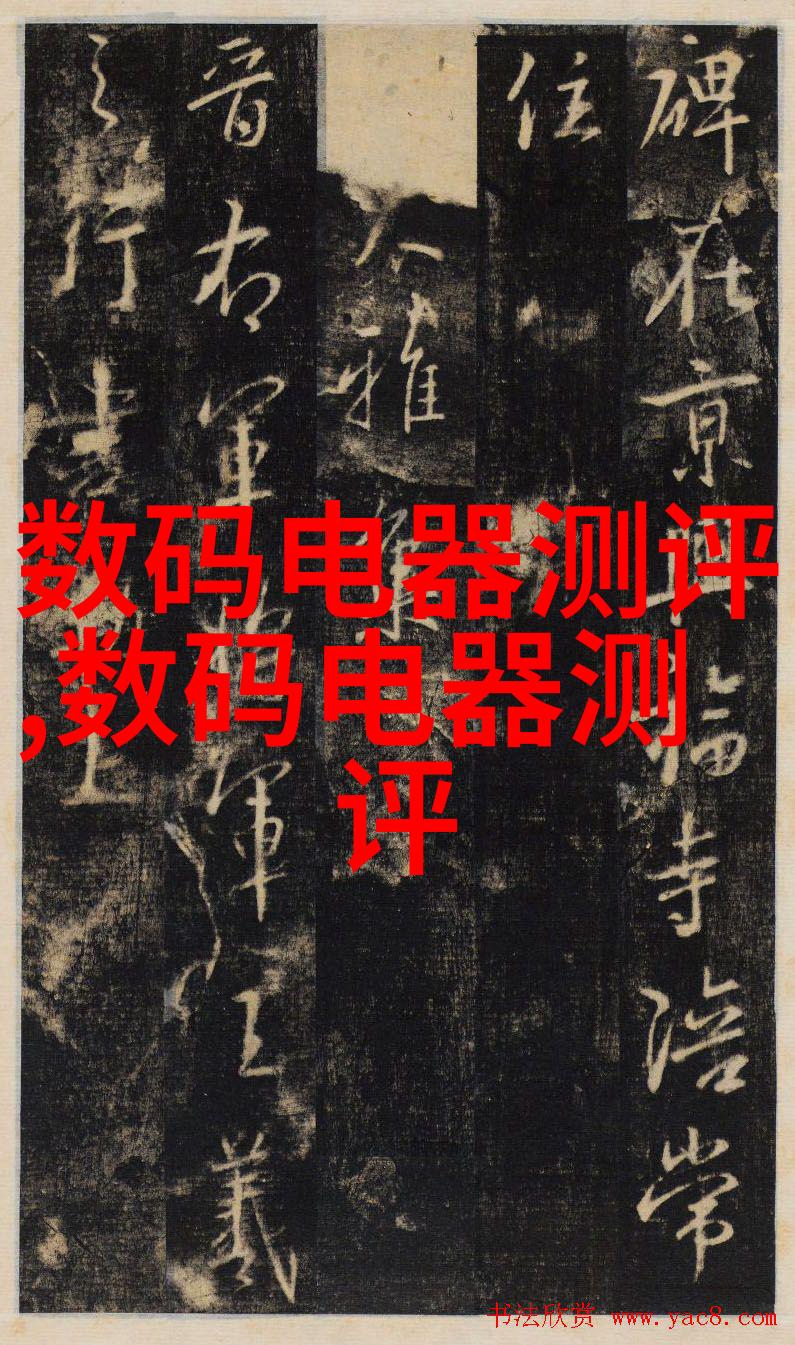 数码电器测评
,数码电器测
评
碑在京興福寺陪常
住
雅集
晋右軍將軍王羲
之行書上
书法欣赏 www.yac8.com